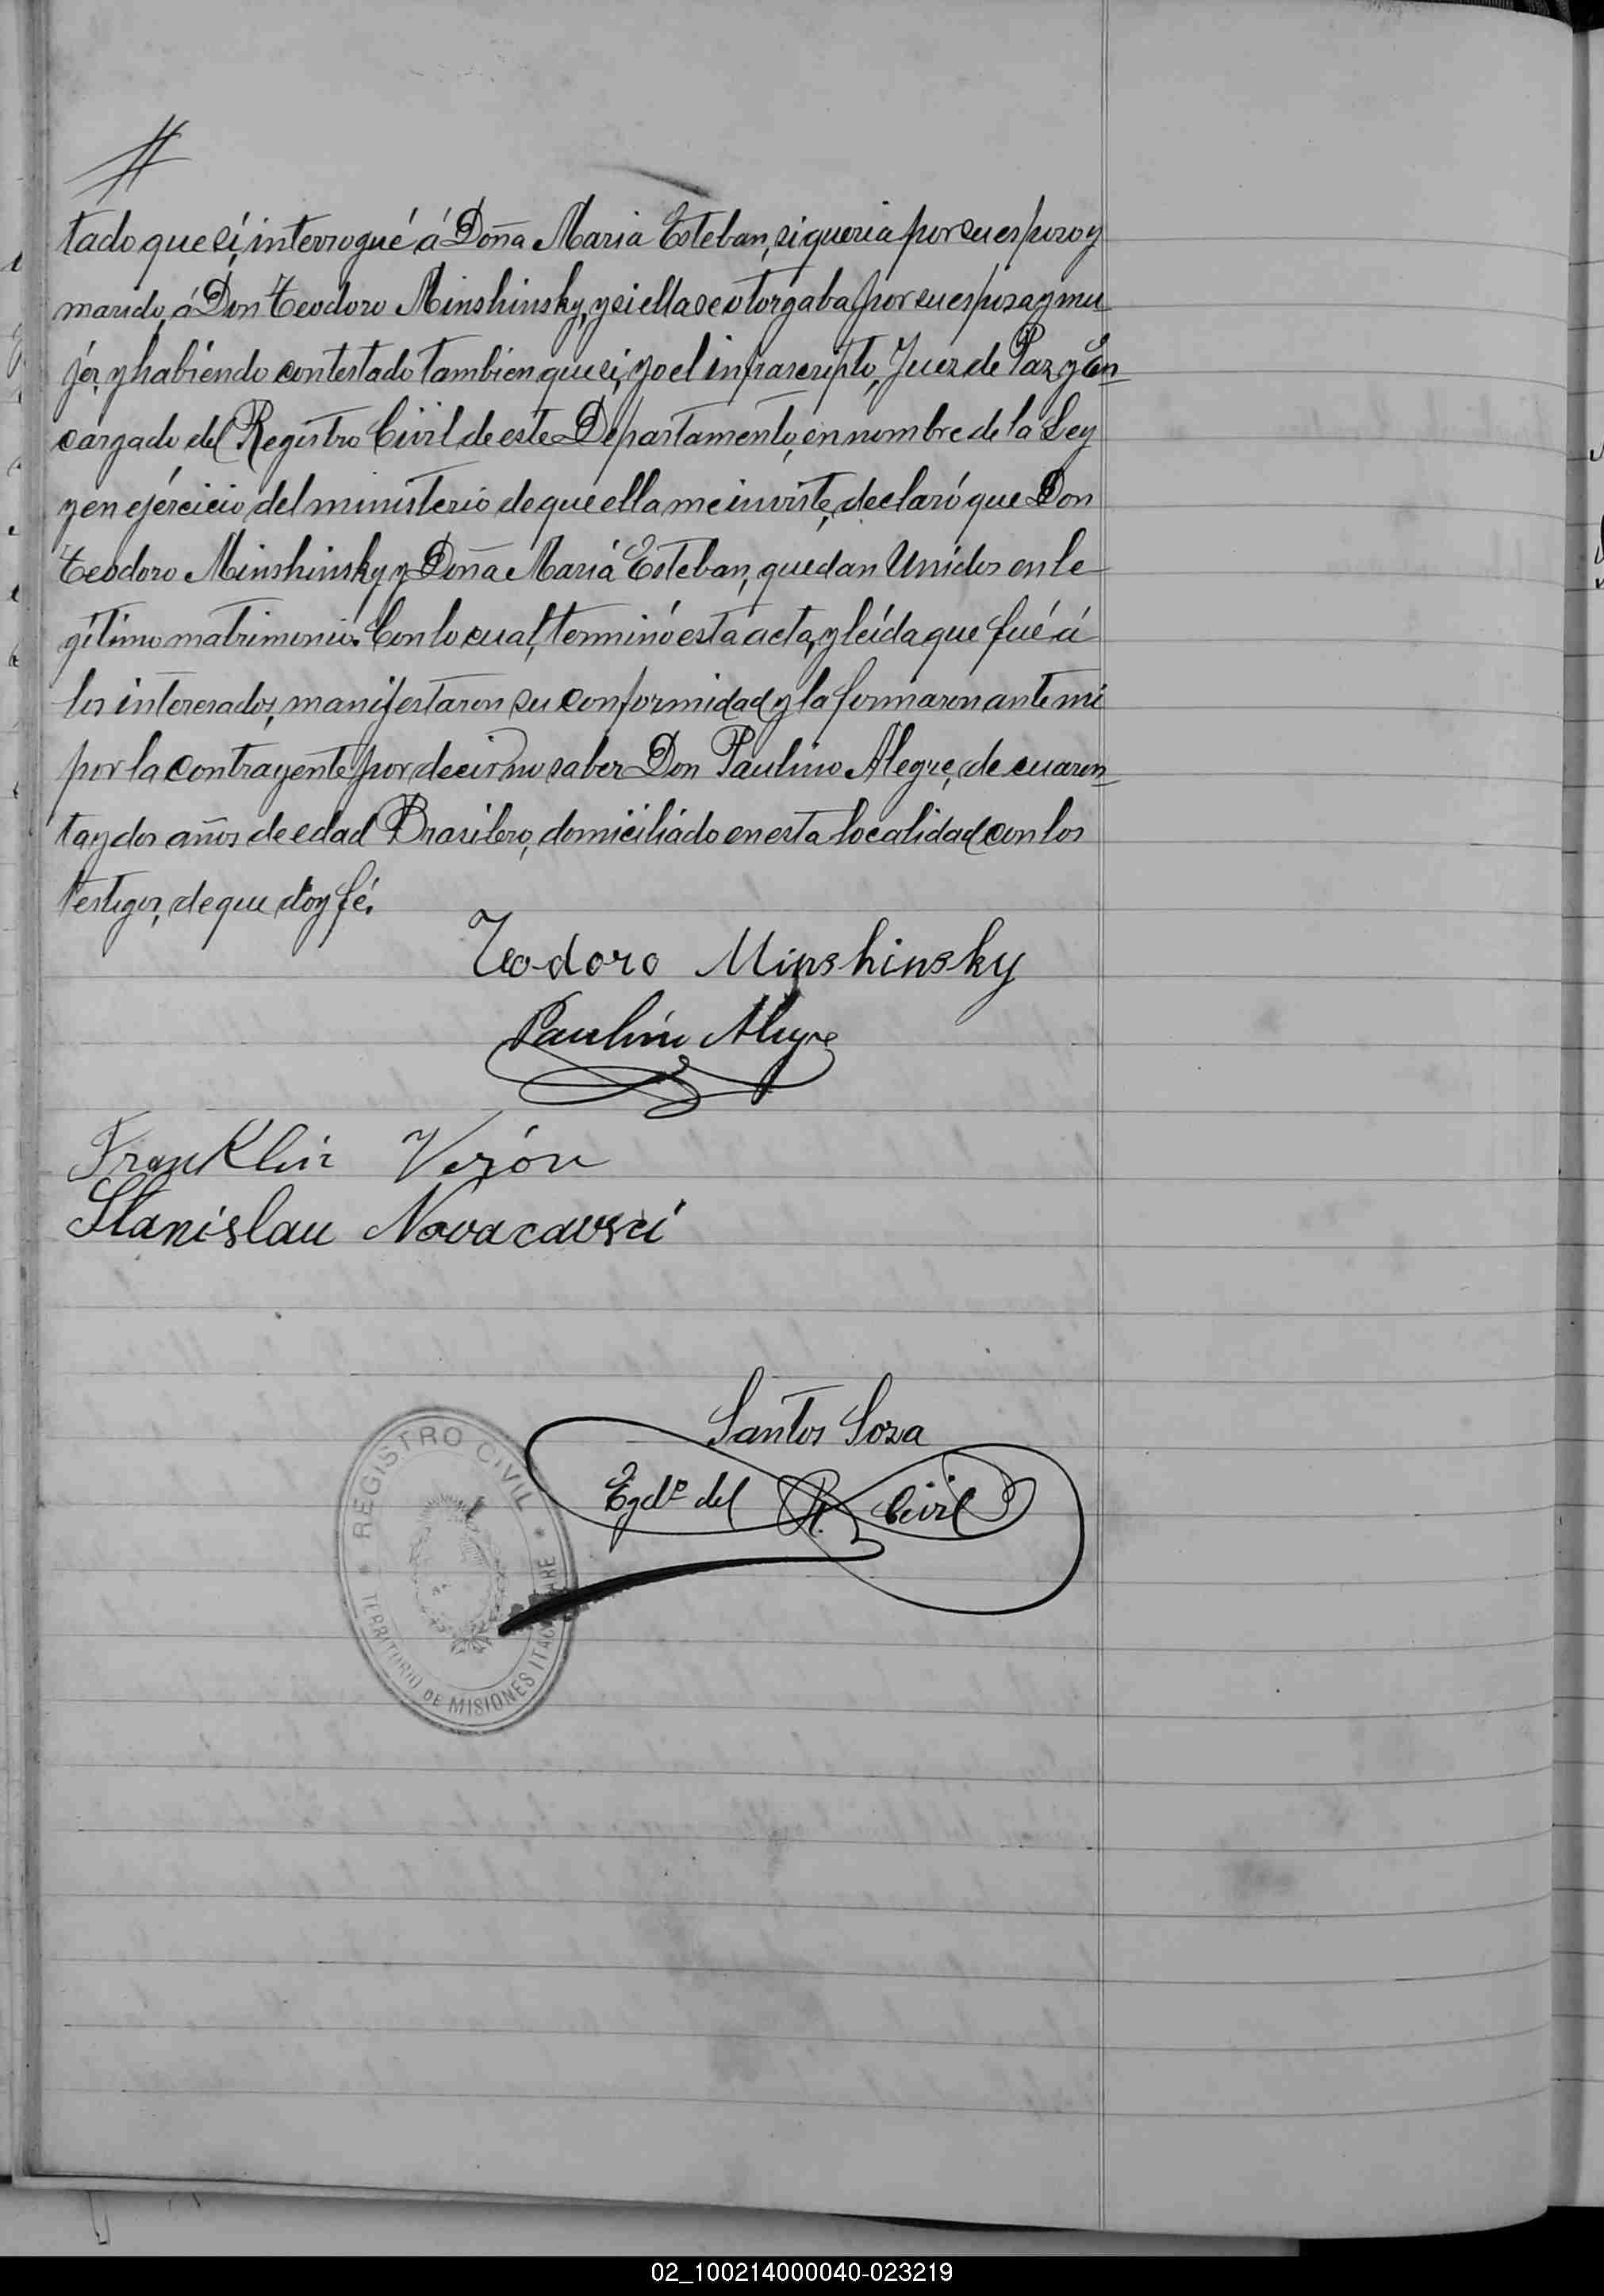 #
tado que sí, interrogué á Doña Maria Esteban, si queria por su esposo y
marido, á Don Teodoro Minshinsky, y si ella se otorgaba por su esposa y mu
jer, y habiendo contestado tambien que si, yo el infrascripto, Juez de Paz y En
cargado del Registro Civil de este Departamento, en nombre de la Ley
y en ejércicio del ministerio de que ella me inviste, declaró que Don
Teodoro Minshinsky y Doña Maria Esteban, quedan Unidos en le
gítimo matrimonio. Con lo cual, terminó esta acta, y leída que fué á
los interesados, manifestaron su conformidad y la firmaron ante mi
por la contrayente por decir no saber Don Paulino Alegre, de cuaren
ta y dos años de edad Brasilero, domiciliado en esta localidad con los
testigos, de que doy fé.
Teodoro Minshinsky
Paulino Alegre
Franklin Verón
Stanislau Novacavsci
Santos Soza
Egdo. del R. Civil
REGISTRO CIVIL
TERRITORIO DE MISIONES
02_100214000040-023219